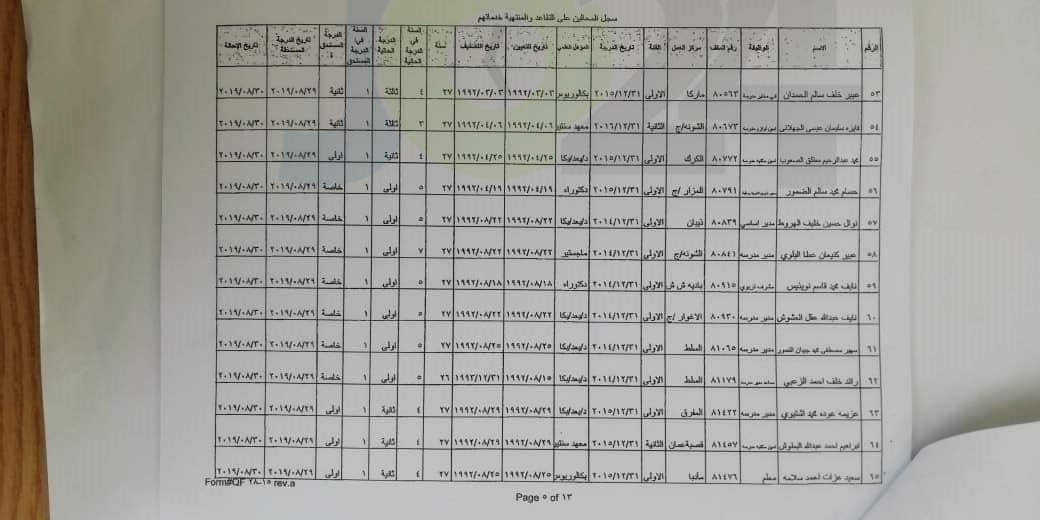 سجل المحالين على التقاعد والمنتهية خدماتهم
الرقم الاسم الوظيفة رقم الملف مركز العمل الفئة تاريخ الدرجة المؤهل العلمي تاريخ التعيين تاريخ التصنيف سنة السنة في الدرجة الحالية الدرجة الحالية السنة في الدرجة المستحق الدرجة المستحق تاريخ الدرجة المستحقة تاريخ الإحالة
٥٣ عبير خلف سالم الحمدان ٨٠٥٦٣ ماركا الاولى ٢٠١٥/١٢/٣١ بكالوريوس ١٩٩٢/٠٣/٠٣ ١٩٩٢/٠٣/٠٣ ٢٧ ٤ ثالثة ١ ثانية ٢٠١٩/٠٨/٢٩ ٢٠١٩/٠٨/٣٠
٥٤ فايزه سليمان عيسى ٨٠٦٧٣ الشونه/ج الثانية ٢٠١٦/١٢/٣١ ١٩٩٢/٠٤/٠٦ ١٩٩٢/٠٤/٠٦ ٢٧ ٣ ثالثة ١ ثانية ٢٠١٩/٠٨/٢٩ ٢٠١٩/٠٨/٣٠
٥٥ محمد عبدالرحيم مطلق الصعوب ٨٠٧٧٢ الكرك الاولى ٢٠١٥/١٢/٣١ ١٩٩٢/٠٤/٢٥ ١٩٩٢/٠٤/٢٥ ٢٧ ٤ ثانية ١ اولى ٢٠١٩/٠٨/٢٩ ٢٠١٩/٠٨/٣٠
٥٦ حسام محمد سالم الضمور ٨٠٧٩١ المزار /ج الاولى ٢٠١٥/١٢/٣١ دكتوراه ١٩٩٢/٠٤/١٩ ١٩٩٢/٠٤/١٩ ٢٧ ٥ اولى ١ خاصة ٢٠١٩/٠٨/٢٩ ٢٠١٩/٠٨/٣٠
٥٧ نوال حسين خليف الهروط مدير اساسي ٨٠٨٣٩ ذيبان الاولى ٢٠١٤/١٢/٣١ ١٩٩٢/٠٨/٢٢ ١٩٩٢/٠٨/٢٢ ٢٧ ٥ اولى ١ خاصة ٢٠١٩/٠٨/٢٩ ٢٠١٩/٠٨/٣٠
٥٨ عبير كنيعان عطا البلوي مدير مدرسه ٨٠٨٤١ الشونه/ج الاولى ٢٠١٤/١٢/٣١ ماجستير ١٩٩٢/٠٨/٢٢ ١٩٩٢/٠٨/٢٢ ٢٧ ٧ اولى ١ خاصة ٢٠١٩/٠٨/٢٩ ٢٠١٩/٠٨/٣٠
٥٩ نايف محمد قاسم مشرف تربوي ٨٠٩١٥ باديه ش ش الاولى ٢٠١٤/١٢/٣١ دكتوراه ١٩٩٢/٠٨/١٨ ١٩٩٢/٠٨/١٨ ٢٧ ٥ اولى ١ خاصة ٢٠١٩/٠٨/٢٩ ٢٠١٩/٠٨/٣٠
٦٠ نايف عبدالله عقل العشوش مدير مدرسه ٨٠٩٣٠ الاغوار /ج الاولى ٢٠١٤/١٢/٣١ ١٩٩٢/٠٨/٢٢ ١٩٩٢/٠٨/٢٢ ٢٧ ٥ اولى ١ خاصة ٢٠١٩/٠٨/٢٩ ٢٠١٩/٠٨/٣٠
٦١ سهير مصطفى النسور مدير مدرسه ٨١٠٦٥ السلط الاولى ٢٠١٤/١٢/٣١ ١٩٩٢/٠٨/٢٥ ١٩٩٢/٠٨/٢٥ ٢٧ ٥ اولى ١ خاصة ٢٠١٩/٠٨/٢٩ ٢٠١٩/٠٨/٣٠
٦٢ رائد خلف احمد الزعبي ٨١١٧٩ السلط الاولى ٢٠١٤/١٢/٣١ ١٩٩٢/٠٨/١٥ ١٩٩٣/١٢/٣١ ٢٦ ٥ اولى ١ خاصة ٢٠١٩/٠٨/٢٩ ٢٠١٩/٠٨/٣٠
٦٣ عزيمه عوده محمد اشتيوي مدير مدرسه ٨١٤٢٢ المفرق الاولى ٢٠١٥/١٢/٣١ ١٩٩٢/٠٨/٢٩ ١٩٩٢/٠٨/٢٩ ٢٧ ٤ ثانية ١ اولى ٢٠١٩/٠٨/٢٩ ٢٠١٩/٠٨/٣٠
٦٤ ابراهيم احمد عبدالله البطوش ٨١٤٥٧ قصبةعمان الثانية ٢٠١٥/١٢/٣١ ١٩٩٢/٠٨/٢٩ ١٩٩٢/٠٨/٢٩ ٢٧ ٤ ثانية ١ اولى ٢٠١٩/٠٨/٢٩ ٢٠١٩/٠٨/٣٠
٦٥ سعيد عزات احمد سلامه معلم ٨١٤٧٦ مادبا الاولى ٢٠١٥/١٢/٣١ بكالوريوس ١٩٩٢/٠٨/٢٥ ١٩٩٢/٠٨/٢٥ ٢٧ ٤ ثانية ١ اولى ٢٠١٩/٠٨/٢٩ ٢٠١٩/٠٨/٣٠
Form#QF ٢٨-١٥ rev.a
Page ٥ of ١٣